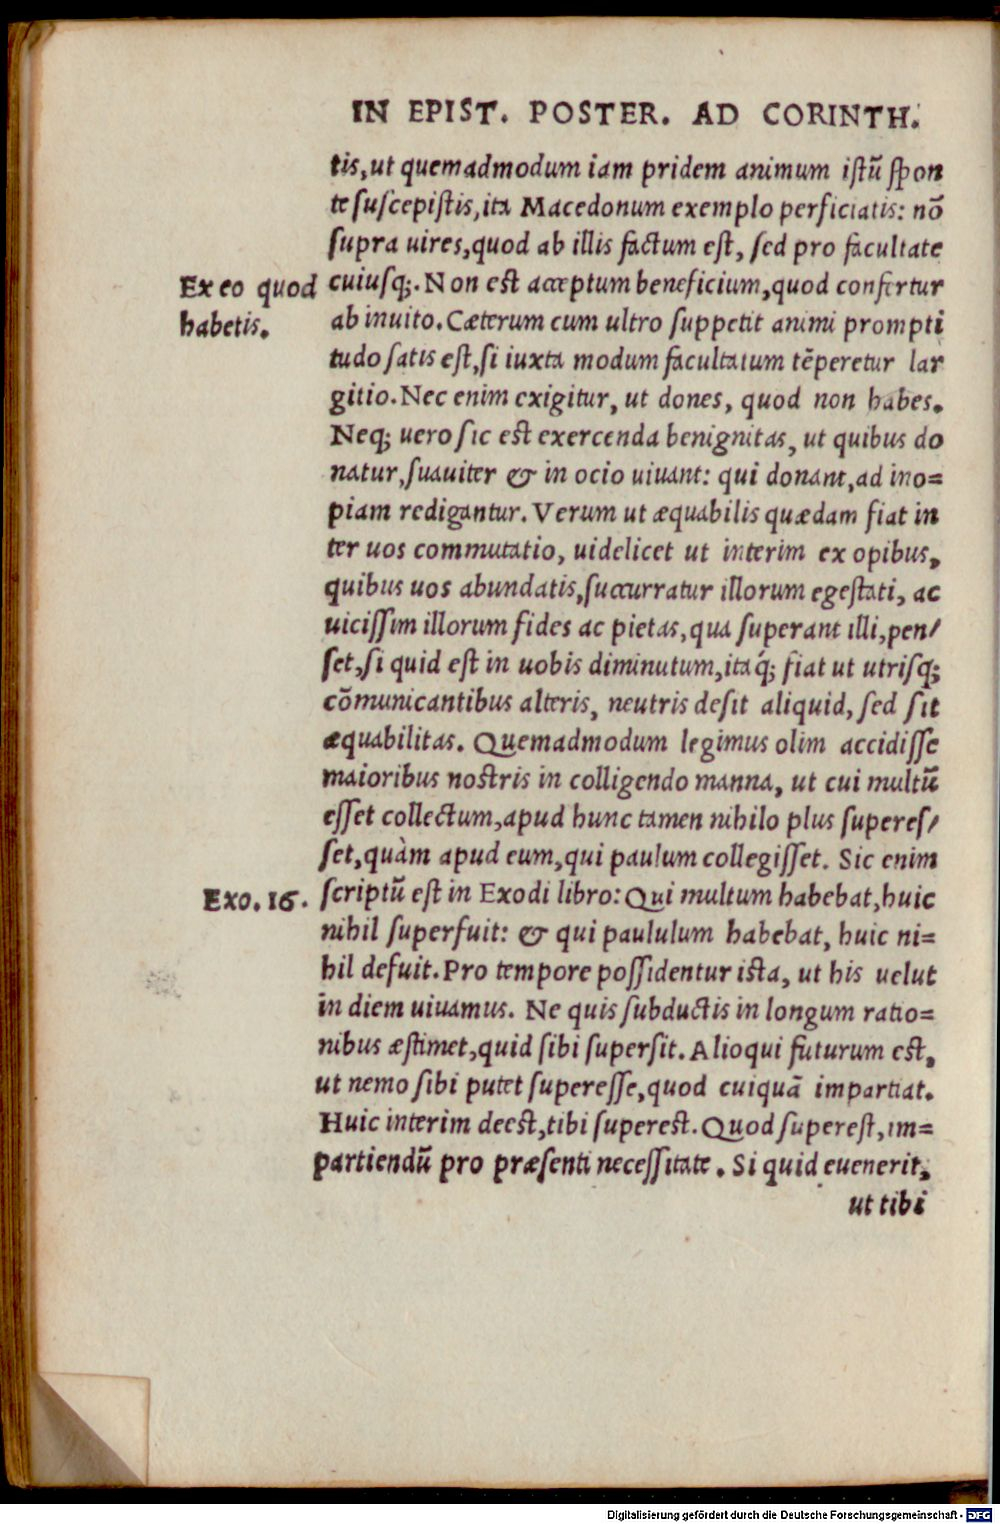 IN EPIST. POSTER. AD CORINTH.
tis, ut quemadmodum iam pridem animum istũ spon
te suscepistis, ita Macedonum exemplo perficiatis: nõ
supra uires, quod ab illis factum est, sed pro facultate
Ex eo quod
habetis.
cuiusq;. Non est acceptum beneficium, quod confertur
ab inuito. Cæterum cum ultro suppetit animi prompti
tudo satis est, si iuxta modum facultatum tẽperetur lar
gitio. Nec enim exigitur, ut dones, quod non habes.
Neq; uero sic est exercenda benignitas, ut quibus do
natur, suauiter & in ocio uiuant: qui donant, ad ino=
piam redigantur. Verum ut æquabilis quædam fiat in
ter uos commutatio, uidelicet ut interim ex opibus,
quibus uos abundatis, succurratur illorum egestati, ac
uicissim illorum fides ac pietas, qua superant illi, pen/
set, si quid est in uobis diminutum, itaq́; fiat ut utrisq;
cõmunicantibus alteris, neutris desit aliquid, sed sit
æquabilitas. Quemadmodum legimus olim accidisse
maioribus nostris in colligendo manna, ut cui multũ
esset collectum, apud hunc tamen nihilo plus superes/
set, quàm apud eum, qui paulum collegisset. Sic enim
Exo. 16.
scriptũ est in Exodi libro: Qui multum habebat, huic
nihil superfuit: & qui paululum habebat, huic ni=
hil defuit. Pro tempore possidentur ista, ut his uelut
in diem uiuamus. Ne quis subductis in longum ratio=
nibus æstimet, quid sibi supersit. Alioqui futurum est,
ut nemo sibi putet superesse, quod cuiquã impartiat.
Huic interim deest, tibi superest. Quod superest, im=
partiendũ pro præsenti necessitate. Si quid euenerit,
ut tibi
Digitalisierung gefördert durch die Deutsche Forschungsgemeinschaft - DFG